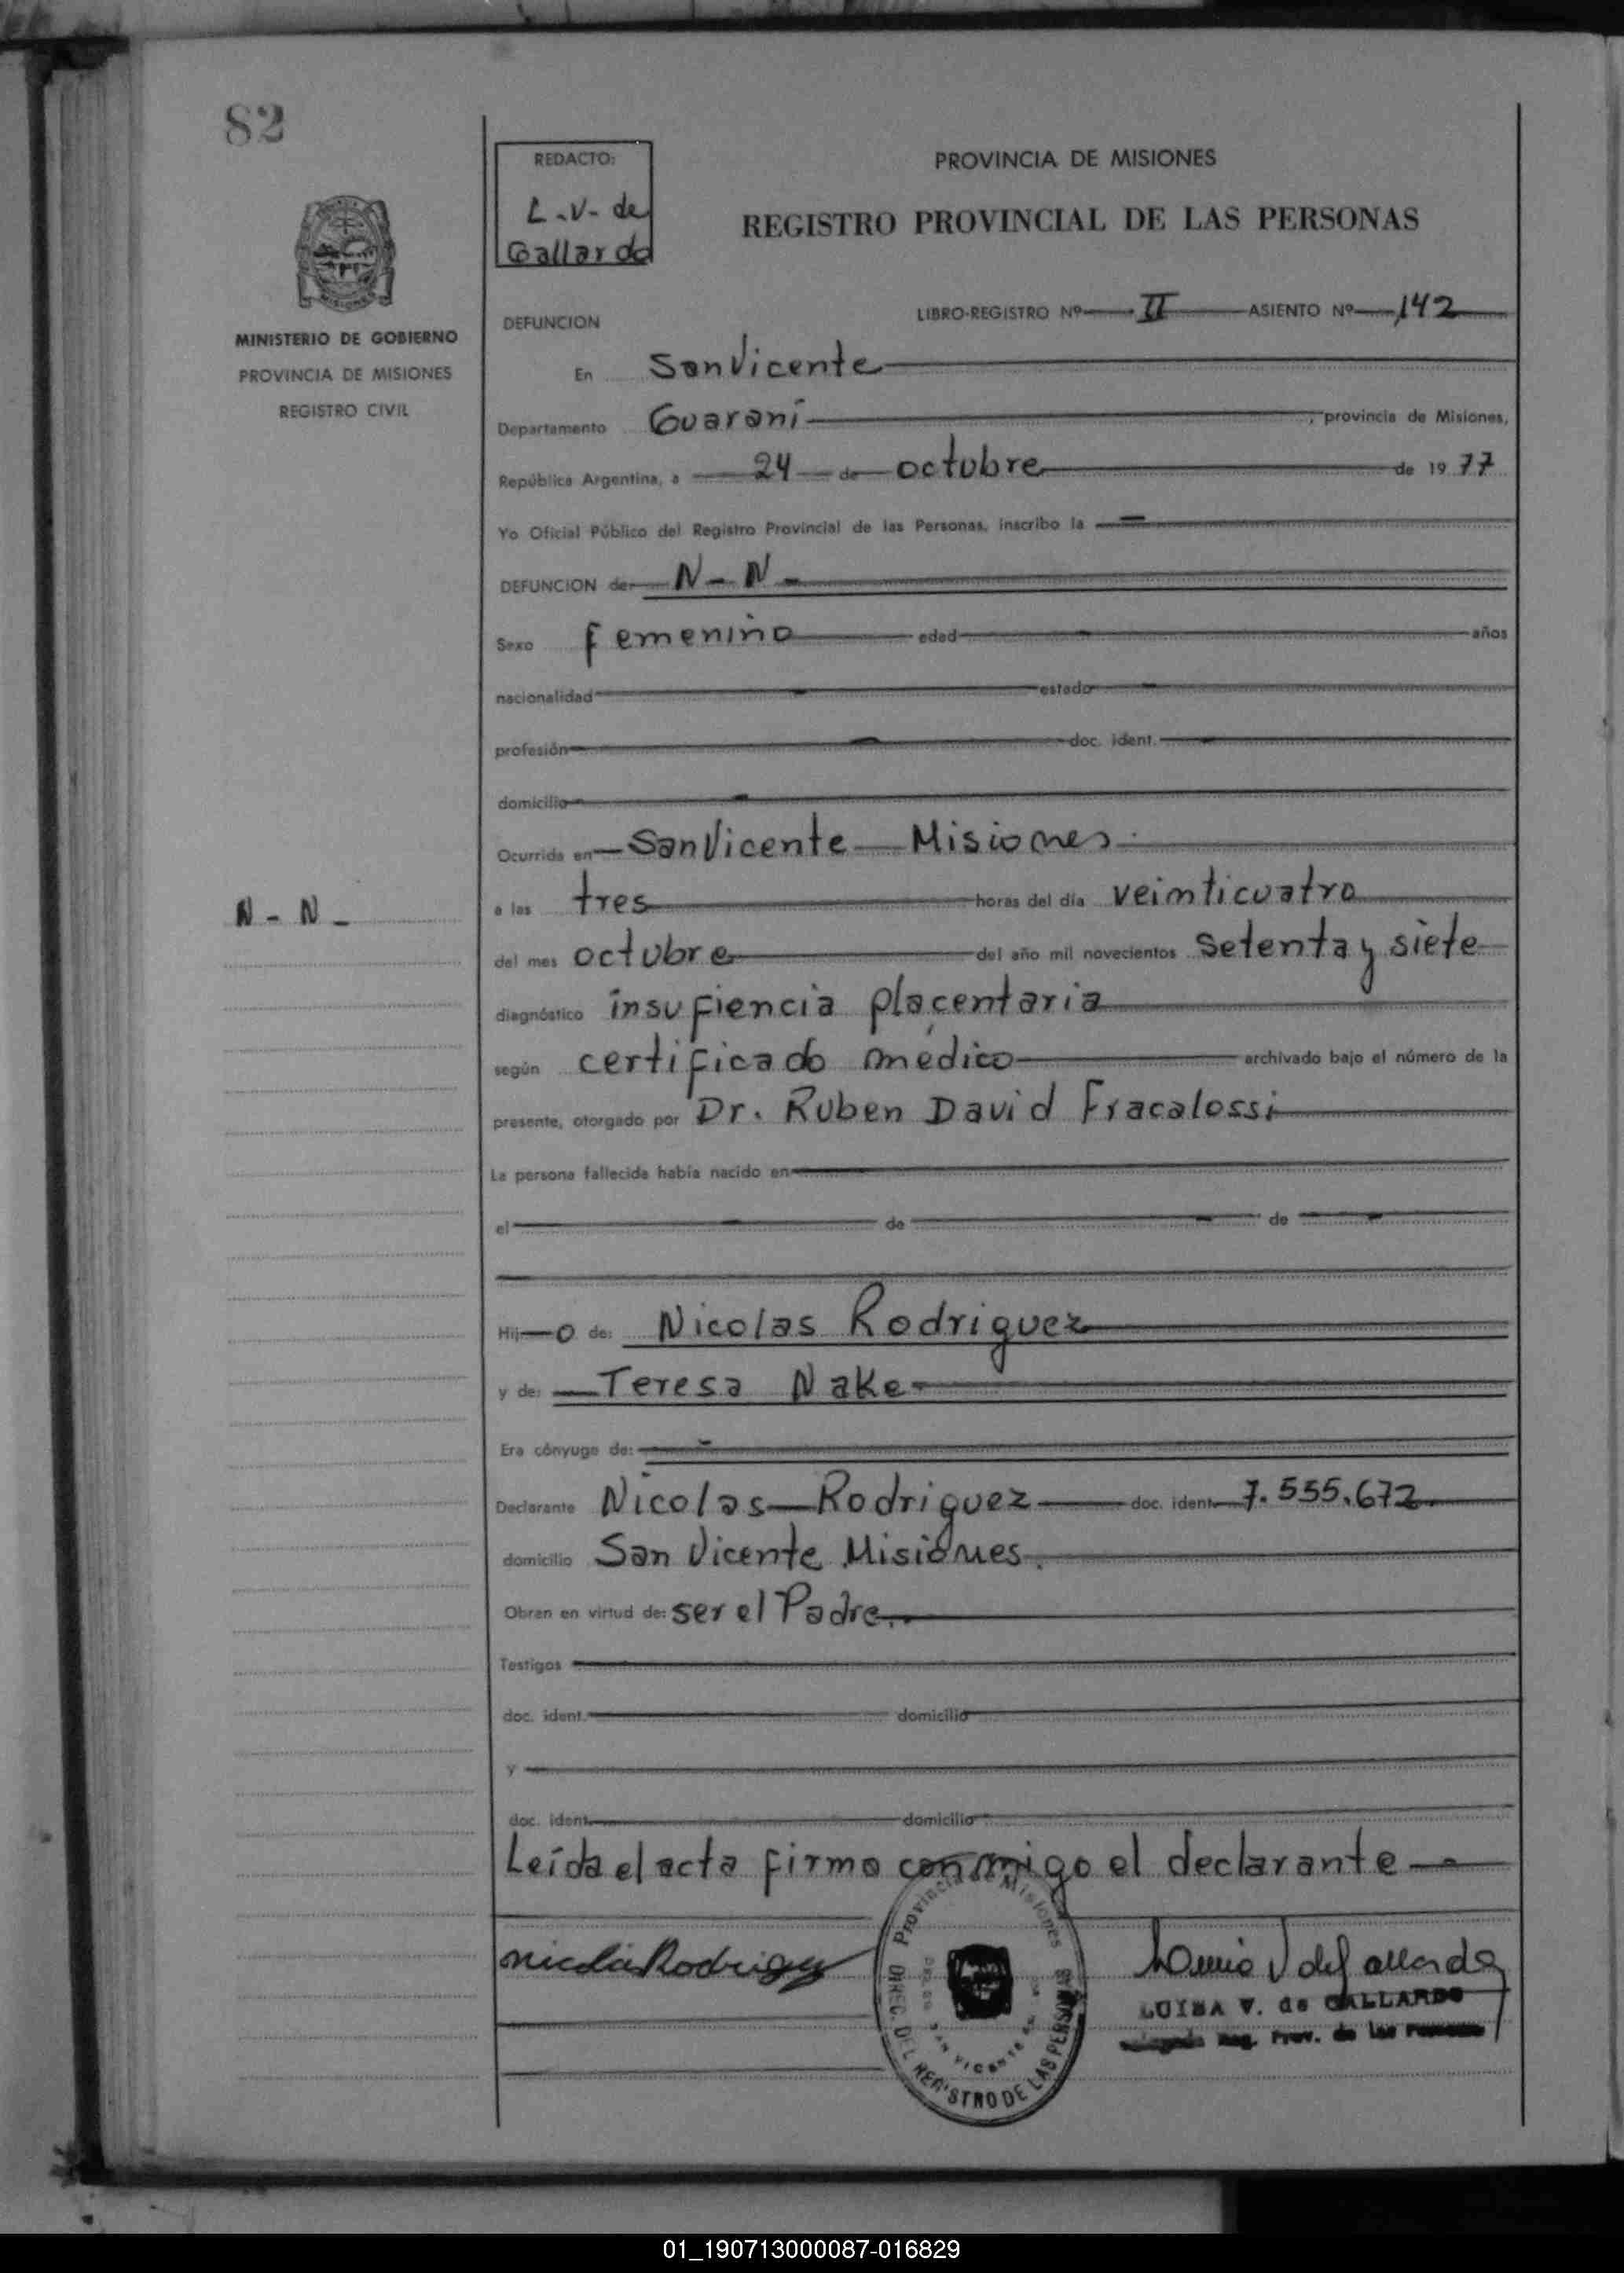 82
REDACTO:
L.V. de
Gallardo
PROVINCIA DE MISIONES
REGISTRO PROVINCIAL DE LAS PERSONAS
MINISTERIO DE GOBIERNO
PROVINCIA DE MISIONES
REGISTRO CIVIL
DEFUNCION
LIBRO-REGISTRO Nº II ASIENTO Nº 142
En San Vicente
Departamento Guaraní, provincia de Misiones,
República Argentina, a 24 de octubre de 1977
Yo Oficial Público del Registro Provincial de las Personas, inscribo la
DEFUNCION de N - N -
Sexo femenino edad años
nacionalidad estado
profesión doc. ident.
domicilio
Ocurrida en San Vicente Misiones.
N - N -
a las tres horas del día veinticuatro
del mes octubre del año mil novecientos setenta y siete
diagnóstico insufiencia placentaria
según certificado médico archivado bajo el número de la
presente, otorgado por Dr. Ruben David Fracalossi
La persona fallecida había nacido en
el de de
Hij o de: Nicolas Rodriguez
y de: Teresa Nake
Era cónyuge de:
Declarante Nicolas Rodriguez doc. ident. 7.555.672
domicilio San Vicente Misiones.
Obran en virtud de: ser el Padre.
Testigos
doc. ident. domicilio
y
doc. ident. domicilio
Leída el acta firma conmigo el declarante
Nicolas Rodriguez
Provincia de Misiones
DIREC. DEL REGISTRO DE LAS PERSONAS
SAN VICENTE
LUISA V. de GALLARDO
Reg. Prov. de las Personas
01_190713000087-016829